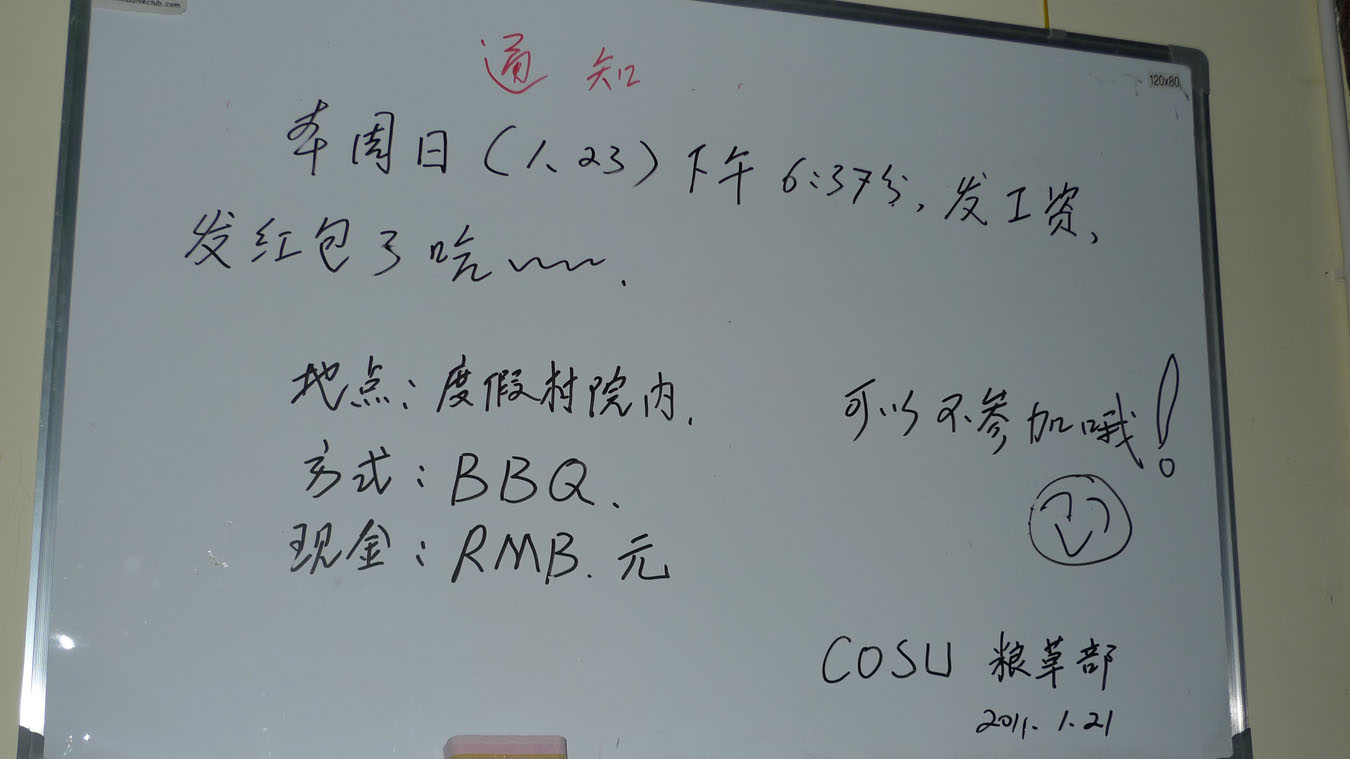 通知
本周日(1、23)下午6:37分,发工资、
发红包了哈~~~.
地点:度假村院内.
方式:BBQ.
现金:RMB.元
可以不参加哦!
COSU 粮草部
2011.1.21
120x80